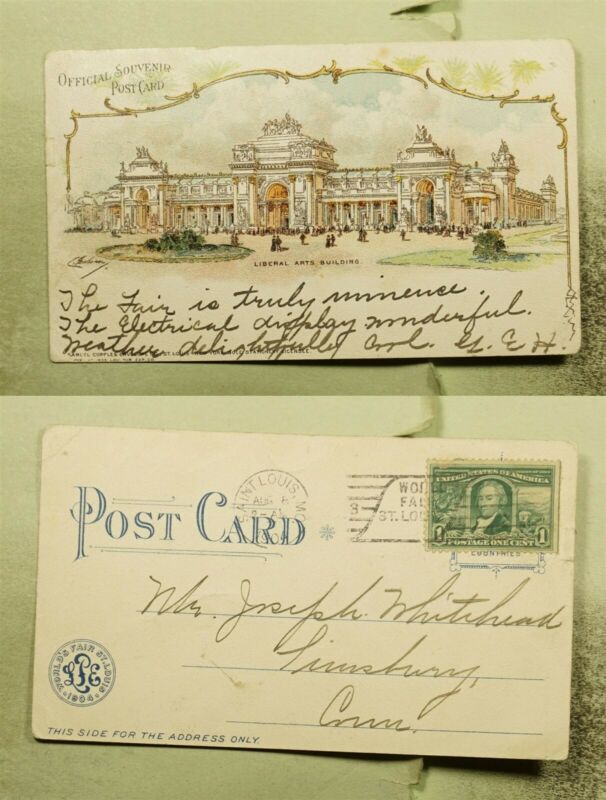 OFFICIAL SOUVENIR
POST CARD
LIBERAL ARTS BUILDING.
The Fair is truly minence.
The Electrical display wonderful.
Weather delightfully cool. G. E. H.
SAML. CUPPLES ST. LOUIS SOLE LICENSEE.
POST CARD
SAINT LOUIS, MO.
AUG 8
3
WORL
FAI
ST. LOU
UNITED STATES OF AMERICA
1 POSTAGE ONE CENT 1
COUNTRIES
Mr. Joseph Whitehead
Simsbury,
Conn.
WORLD'S FAIR ST. LOUIS
LPE
1904
THIS SIDE FOR THE ADDRESS ONLY.